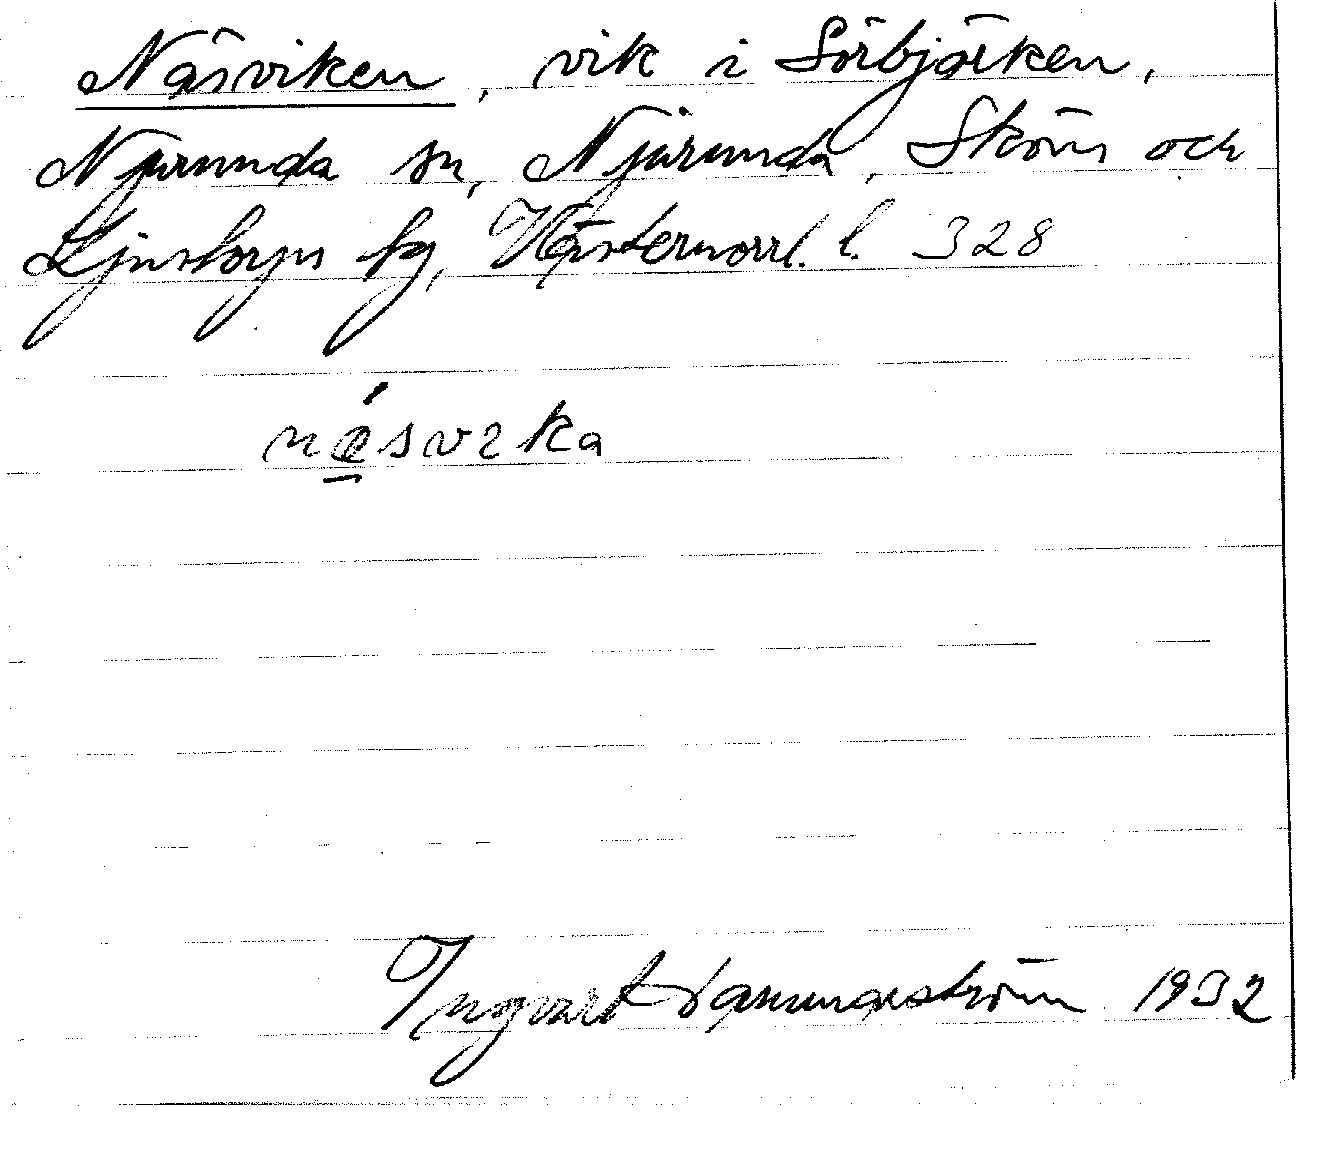 Näsviken, vik i Sörbjörken,
Njurunda sn, Njurunda, Sköns och
Ljustorps tg, Västernorrl. l. 328
nǽ̠svɩka
Ingvart 1932